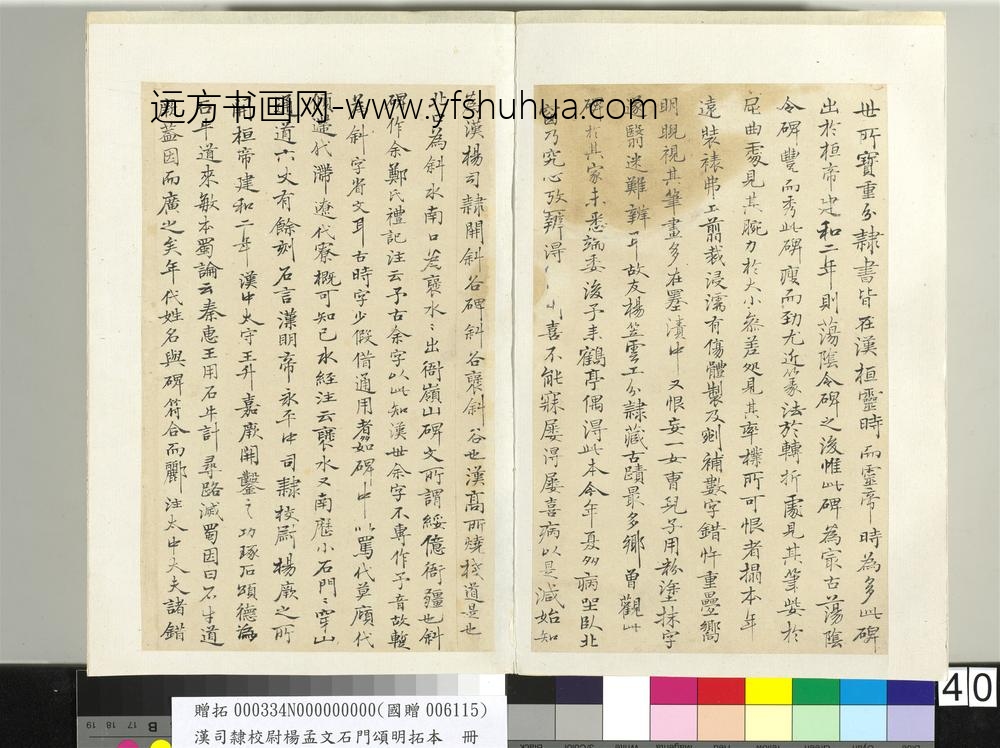 世所寶重分隸書皆在漢桓靈時而靈帝時為多此碑
出於桓帝建和二年則蕩陰令碑之後惟此碑為㝡古蕩陰
令碑豐而秀此碑瘦而勁尤近篆法於轉折處見其筆勢於
屈曲處見其腕力於大小參差處見其率樸所可恨者搨本年
遠裝裱弗工翦裁浸濡有傷體製及剜補數字錯忤重疊嚮
明覩視其筆畫多在墨漬中又恨妄一女曹兒子用粉塗抹字
遂翳迷難辨耳故友楊笠雲工分隸藏古蹟最多鄉曽觀此
碑於其家未悉端委後予耒鶴亭偶得此本今年夏多病坐臥北
窗乃究心攷辨得 喜不能寐屡得屡喜病以是減始知
為漢楊司隸開斜谷碑斜谷襃斜谷也漢高所燒棧道是也
北口為斜水南口為襃水水出衙嶺山碑文所謂綏億衙彊也斜
碑作余鄭氏禮記注云予古余字以此知漢世余字不專作予音故輙
斜字省文耳古時字少假借通用者如碑中以罵代莫碩代
代滯遼代寮概可知已水經注云襃水又南歷小石門門穿山
通道六丈有餘刻石言漢明帝永平中司隸校尉楊厥之所
開桓帝建和二年漢中太守王升嘉厥開鑿之功琢石頌德為
石牛道來敏本蜀論云秦惠王用石牛計尋路滅蜀因曰石牛道
厥蓋因而廣之矣年代姓名與碑符合而酈注太中大夫諸錯
远方书画网-www.yfshuhua.com
40
贈拓 000334N000000000(國贈 006115)
漢司隸校尉楊孟文石門頌明拓本 冊
19 18 17 16 15
B